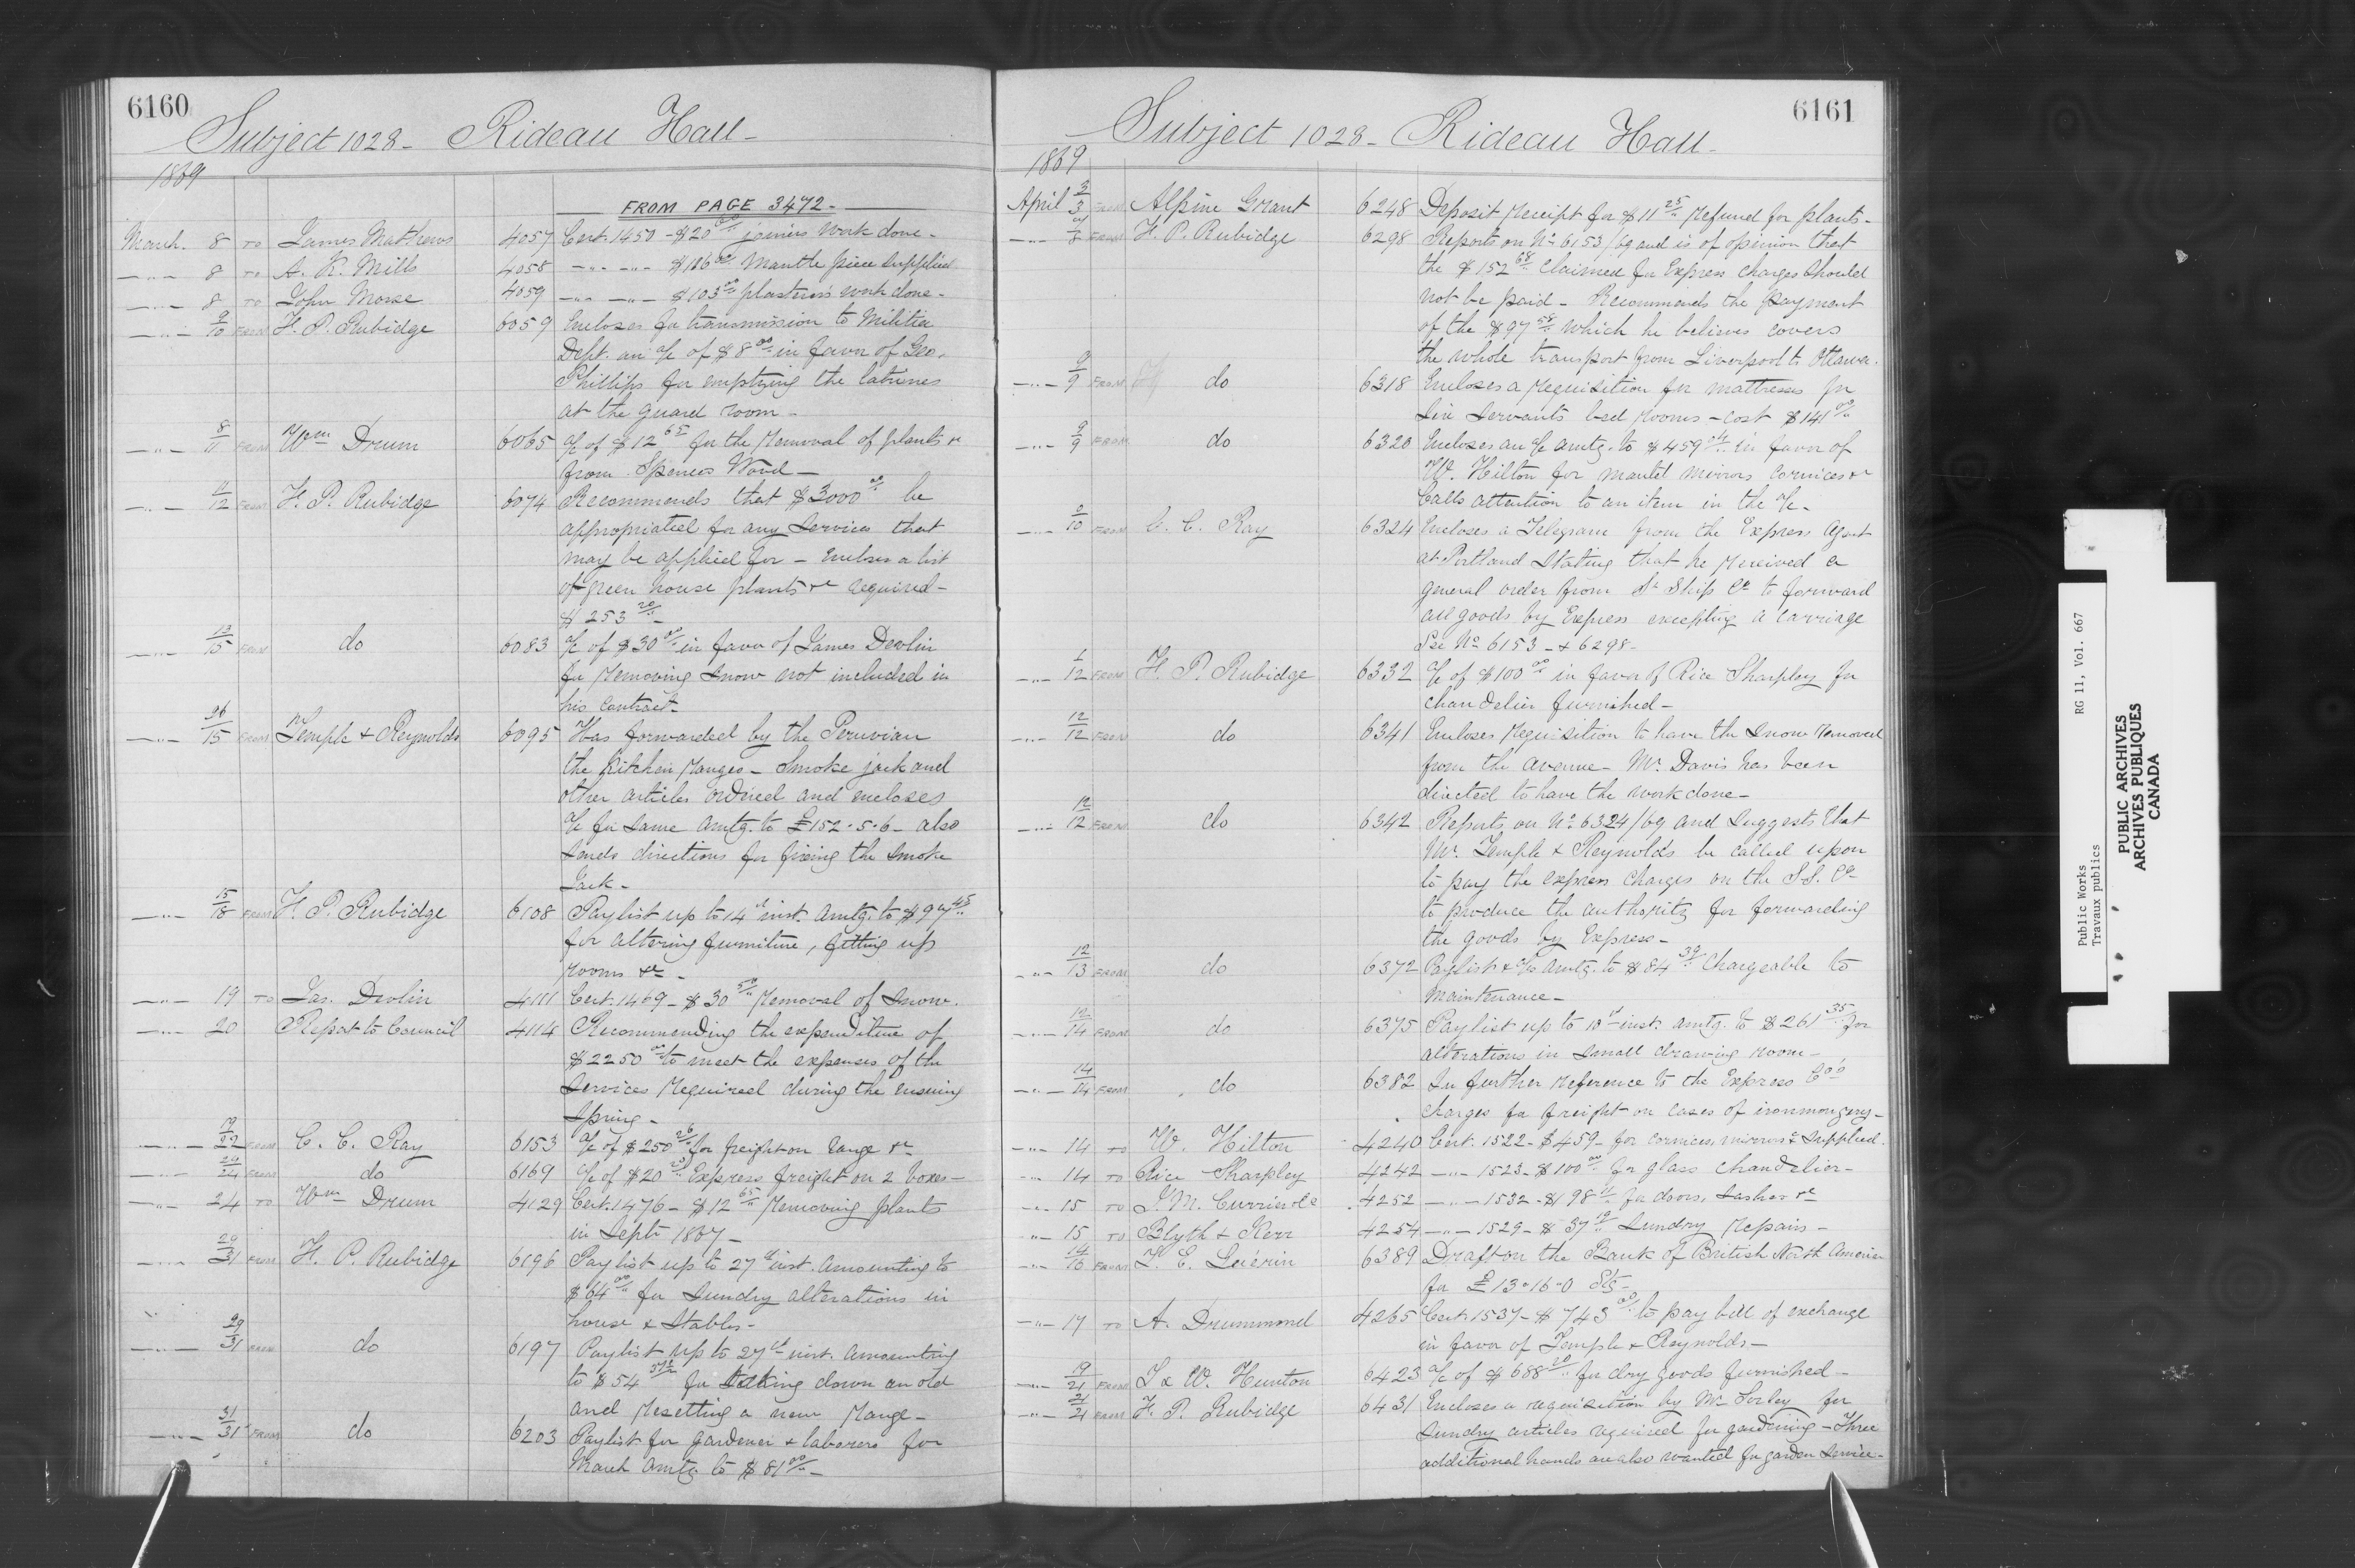 6160
Subject 1028 - Rideau Hall -
1869
FROM PAGE 3472 -
March. 8 TO James Mathews 4057 Cert. 1450 - $20 00 joiners work done -
-"- 8 TO A. K. Mills 4058 -"- -"- $186 00 Mantle piece supplied
-"- 8 TO John Morse 4059 -"- -"- $103 00 plasterers work done -
-"- 9/10 FROM F. P. Rubidge 6059 Encloses for transmission to Militia
Dept. an a/c of $8 00 in favor of Geo.
Phillips for emptying the latrines
at the guard room -
-"- 8/11 FROM Wm Drum 6065 a/c of $12 65 for the removal of plants &c
from Spencer Wood -
-"- 11/12 FROM F. P. Rubidge 6074 Recommends that $3000 00 be
appropriated for any services that
may be applied for - Encloses a list
of green house plants &c required -
$253 20 -
-"- 13/15 FROM do 6083 a/c of $30 00 in favor of James Devlin
for removing snow not included in
his contract -
-"- 26/15 FROM Temple & Reynolds 6095 Has forwarded by the Peruvian
the Kitchen ranges - Smoke jack and
other articles ordered and encloses
a/c for same amtg. to £152.5.6 - also
sends directions for fixing the smoke
Jack -
-"- 15/18 FROM F. P. Rubidge 6108 Paylist up to 14th inst. amtg. to $97 45
for altering furniture, fitting up
rooms &c -
-"- 19 TO Jas. Devlin 4111 Cert. 1469 - $30 50 Removal of snow.
-"- 20 Report to Council 4114 Recommending the expenditure of
$2250 00 to meet the expenses of the
services required during the ensuing
spring -
-"- 19/22 FROM C. C. Ray 6153 a/c of $250 26 for freight on range &c
-"- 24/24 FROM do 6169 a/c of $20 Express freight on 2 boxes -
-"- 24 TO Wm Drum 4129 Cert. 1476 - $12 65 Removing plants
in Sept. 1867 -
-"- 29/31 FROM F. P. Rubidge 6196 Paylist up to 27th inst. amounting to
$64 00 for sundry alterations in
house & stables -
-"- 29/31 FROM do 6197 Paylist up to 27th inst. amounting
to $54 37½ for taking down an old
and resetting a new range -
-"- 31/31 FROM do 6203 Paylist for gardener & laborers for
March amtg to $81 00 -
6161
Subject 1028 - Rideau Hall -
1869
April 3/3 FROM Alpine Grant 6248 Deposit receipt for $11 25 refund for plants -
-"- 8 FROM F. P. Rubidge 6298 Reports on No 6153/69 and is of opinion that
the $152 68 claimed for Express charges should
not be paid - Recommends the payment
of the $97 58 which he believes covers
the whole transport from Liverpool to Ottawa.
-"- 9/9 FROM do 6318 Encloses a requisition for mattresses for
six servants bed rooms - cost $141 00
-"- 9/9 FROM do 6320 Encloses an a/c amtg. to $459 in favor of
W. Hilton for mantel mirrors cornices &c
Calls attention to an item in the a/c -
-"- 9/10 FROM C. C. Ray 6324 Encloses a Telegram from the Express Agent
at Portland stating that he received a
general order from St Ship Co to forward
all goods by Express excepting a carriage
See No 6153 - & 6298 -
-"- 1/12 FROM F. P. Rubidge 6332 a/c of $100 00 in favor of Rice Sharpley for
chandelier furnished -
-"- 12/12 FROM do 6341 Encloses requisition to have the snow removed
from the avenue - Mr. Davis has been
directed to have the work done -
-"- 12/12 FROM do 6342 Reports on No 6324/69 and suggests that
Mr. Temple & Reynolds be called upon
to pay the express charges on the S.S. Co
to produce the authority for forwarding
the goods by Express -
-"- 12/13 FROM do 6372 Paylist & a/c amtg. to $84 39 chargeable to
Maintenance -
-"- 12/14 FROM do 6375 Paylist up to 10th inst. amtg. to $261 35 for
alterations in small drawing room -
-"- 14/14 FROM do 6382 In further reference to the Express Co's
charges for freight on cases of ironmongery -
-"- 14 TO W. Hilton 4240 Cert. 1522 - $459 - for cornices mirrors &c supplied.
-"- 14 TO Rice Sharpley 4242 -"- 1523 - $100 00 for glass chandelier -
-"- 15 TO J. M. Currier &c 4252 -"- 1532 - $198 11 for doors, sashes &c
-"- 15 TO Blyth & Kerr 4254 -"- 1529 - $37 19 Sundry repairs -
-"- 14/16 FROM 6389 Draft on the Bank of British North America
for £13.16.0 Stg -
-"- 17 TO A. Drummond 4265 Cert. 1537 - $743 00 to pay bill of exchange
in favor of Temple & Reynolds -
-"- 19/21 FROM T & W. Hunton 6423 a/c of $688 20 for dry goods furnished -
-"- 21/21 FROM F. P. Rubidge 6431 Encloses a requisition by Mr Sorley for
sundry articles required for gardening - Three
additional hands are also wanted for garden service -
Public Works RG 11, Vol. 667
Travaux publics
PUBLIC ARCHIVES
ARCHIVES PUBLIQUES
CANADA